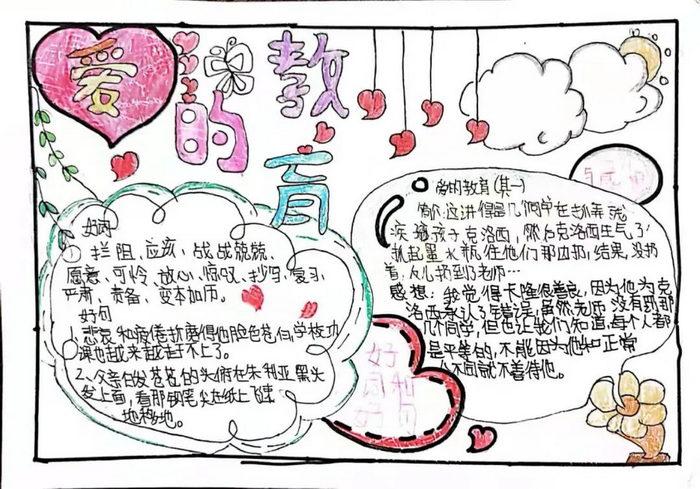 爱的教育
好词
①拦阻、应该、战战兢兢、
愿意、可怜、放心、惊叹、抄写、复习、
严肃、责备、变本加厉。
好句
1、悲哀和疲倦折磨得他脸色苍白,学校功
课也越来越赶不上了。
2、父亲白发苍苍的头俯在朱利亚黑头
发上面,看那钢笔尖在纸上飞速
地移地。
好词和
好句
爱的教育(其一)
疾 孩子克洛西,然后克洛西生气了
抓起墨水瓶往他们那边扔,结果,没扔
着,反儿扔到了老师…
感想:我觉得卡隆很善良,因为他为克
洛西承认了错误,虽然老师没有到那
几个同学,但也让我们知道,每个人都
是平等的,不能因为他和正常
人不同就不善待他。